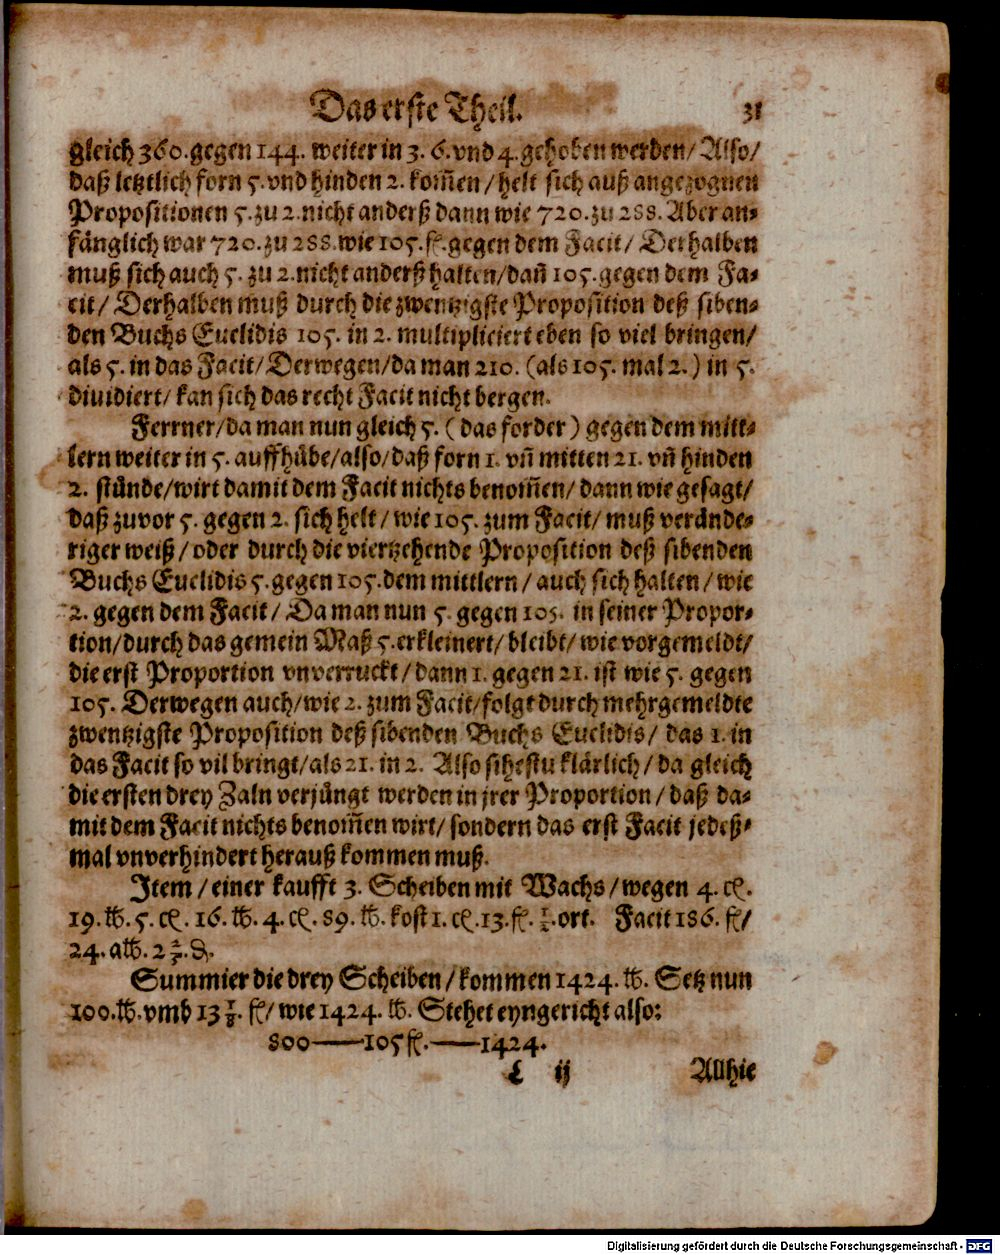 Das erste Theil. 31
gleich 360. gegen 144. weiter in 3. 6. vnd 4. gehoben werden/ Also/
daß letztlich forn 5. vnd hinden 2. kom̃en/ helt sich auß angezognen
Propositionen 5. zu 2. nicht anderß dann wie 720. zu 288. Aber an-
fänglich war 720. zu 288. wie 105. fl. gegen dem Facit/ Derhalben
muß sich auch 5. zu 2. nicht anderß halten/ dañ 105. gegen dem Fa-
cit/ Derhalben muß durch die zwentzigste Proposition deß siben-
den Buchs Euclidis 105. in 2. multipliciert eben so viel bringen/
als 5. in das Facit/ Derwegen/ da man 210. (als 105. mal 2.) in 5.
diuidiert/ kan sich das recht Facit nicht bergen.
Ferrner/ da man nun gleich 5. (das forder) gegen dem mitt-
lern weiter in 5. auffhübe/ also/ daß forn 1. vñ mitten 21. vñ hinden
2. stünde/ wirt damit dem Facit nichts benom̃en/ dann wie gesagt/
daß zuvor 5. gegen 2. sich helt/ wie 105. zum Facit/ muß verände-
riger weiß/ oder durch die viertzehende Proposition deß sibenden
Buchs Euclidis 5. gegen 105. dem mittlern/ auch sich halten/ wie
2. gegen dem Facit/ Da man nun 5. gegen 105. in seiner Propor-
tion/ durch das gemein Maß 5. erkleinert/ bleibt/ wie vorgemeldt/
die erst Proportion vnverruckt/ dann 1. gegen 21. ist wie 5. gegen
105. Derwegen auch/ wie 2. zum Facit/ folgt durch mehrgemeldte
zwentzigste Proposition deß sibenden Buchs Euclidis/ das 1. in
das Facit so vil bringt/ als 21. in 2. Also sihestu klärlich/ da gleich
die ersten drey Zaln verjüngt werden in jrer Proportion/ daß da-
mit dem Facit nichts benom̃en wirt/ sondern das erst Facit jedeß-
mal vnverhindert herauß kommen muß.
Item/ einer kaufft 3. Scheiben mit Wachs/ wegen 4. cl.
19. ℔. 5. cl. 16. ℔. 4. cl. 89. ℔. kost 1. cl. 13. fl. ½. ort. Facit 186. fl/
24. a℔. 2 2/5. ₰.
Summier die drey Scheiben/ kommen 1424. ℔. Setz nun
100. ℔. vmb 13 1/8. fl/ wie 1424. ℔. Stehet eyngericht also:
800——105 fl.——1424.
E ij Allhie
Digitalisierung gefördert durch die Deutsche Forschungsgemeinschaft - DFG